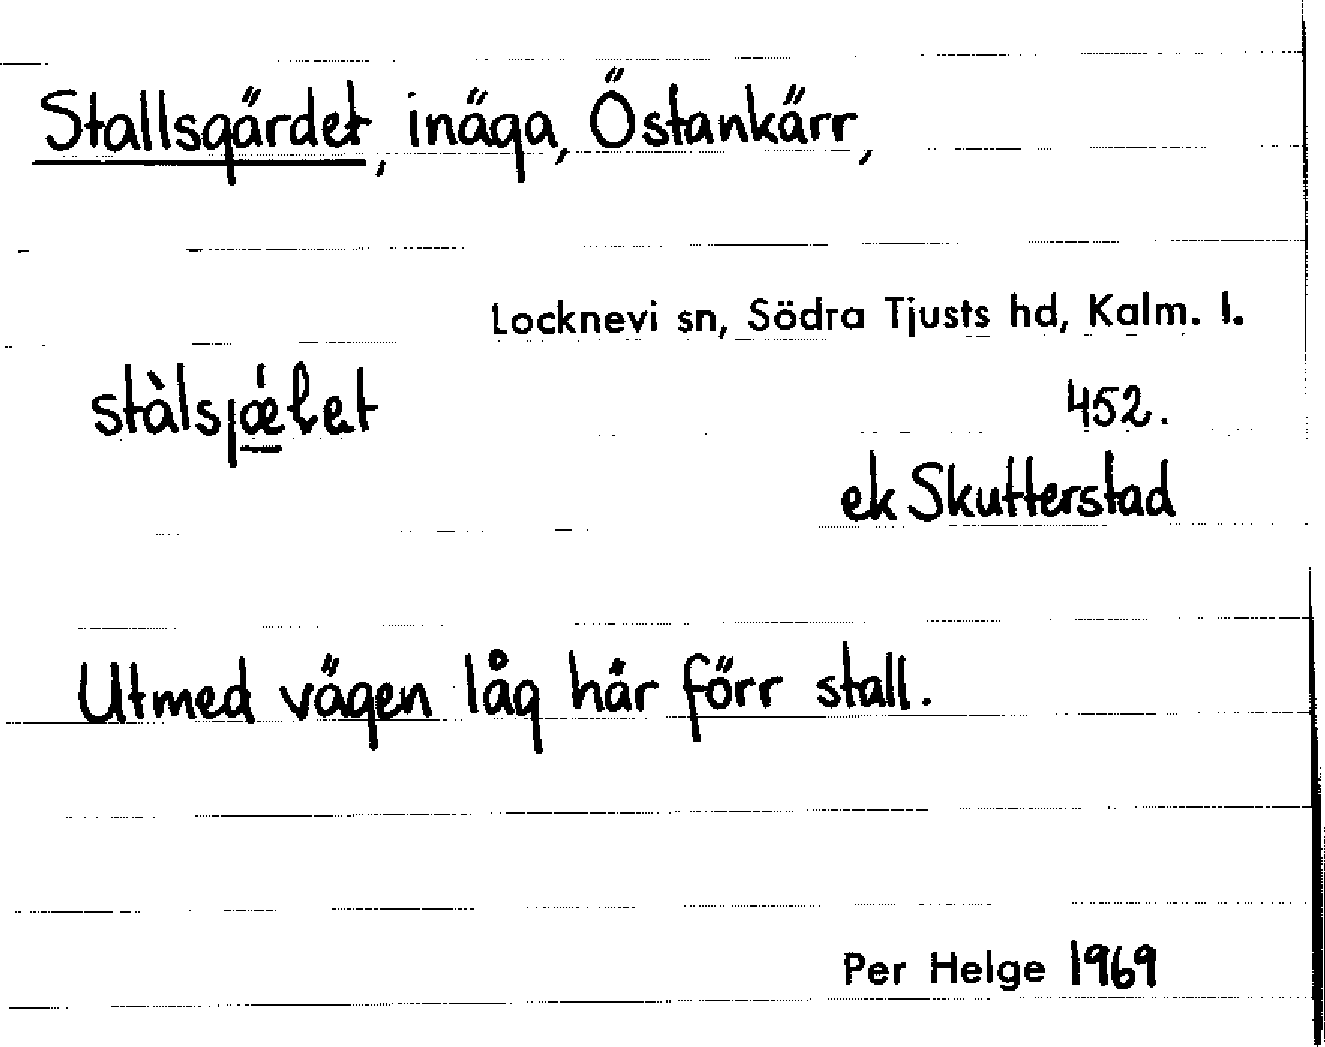 Stallsgärdet, inäga, Östankärr,
Locknevi sn, Södra Tjusts hd, Kalm. l.
452.
ek Skutterstad
Utmed vägen låg här förr stall.
Per Helge 1969